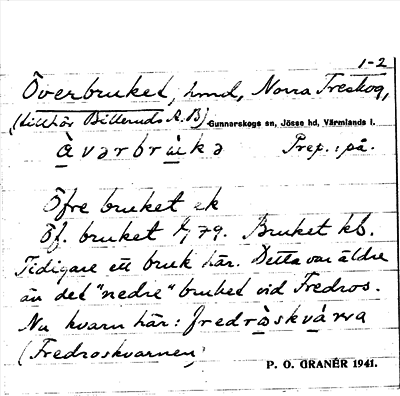 1-2
Överbruket, hmd, Norra Treskog,
(tillhör Billeruds A.B) Gunnarskogs sn, Jösse hd, Värmlands l.
Prep.: på.
Öfre bruket ek
Öf. bruket 79. Bruket kb.
Tidigare ett bruk här. Detta var äldre
än det "nedre" bruket vid Fredros.
Nu kvarn här: fredròskvárva
(Fredroskvarnen)
P. O. GRANÉR 1941.